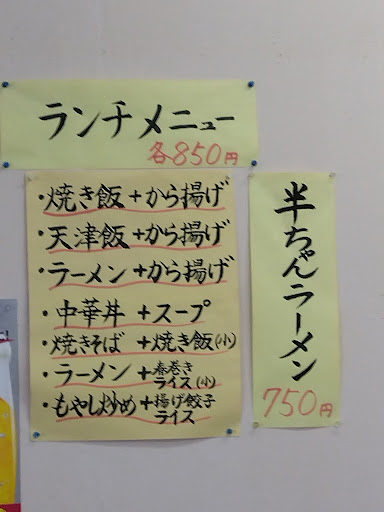 ランチメニュー
各850円
・焼き飯+から揚げ
・天津飯+から揚げ
・ラーメン+から揚げ
・中華丼+スープ
・焼きそば+焼き飯(小)
・ラーメン+春巻き
ライス(小)
・もやし炒め+揚げ餃子
ライス
半ちゃんラーメン
750円